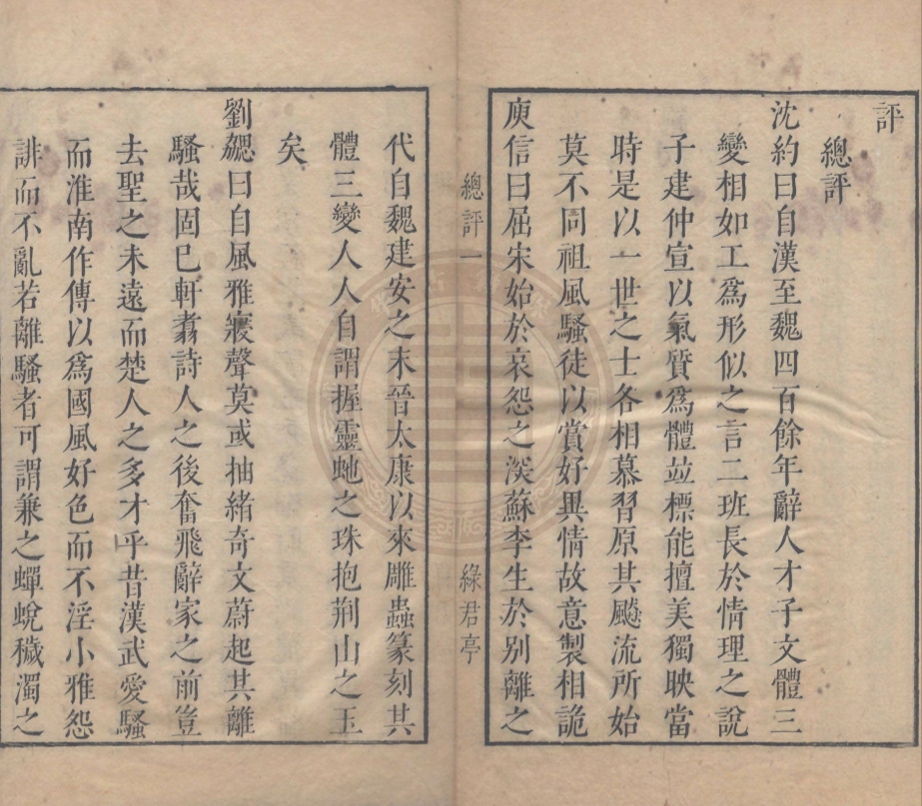 評
總評
沈約曰自漢至魏四百餘年辭人才子文體三
變相如工爲形似之言二班長於情理之說
子建仲宣以氣質爲體竝標能擅美獨映當
時是以一世之士各相慕習原其飈流所始
莫不同祖風騷徒以賞好異情故意製相詭
庾信曰屈宋始於哀怨之深蘇李生於別離之
總評 一 綠君亭
代自魏建安之末晉太康以來雕蟲篆刻其
體三變人人自謂握靈虵之珠抱荊山之玉
矣
劉勰曰自風雅寢聲莫或抽緒奇文蔚起其離
騷哉固已軒翥詩人之後奮飛辭家之前豈
去聖之未遠而楚人之多才乎昔漢武愛騷
而淮南作傳以爲國風好色而不淫小雅怨
誹而不亂若離騷者可謂兼之蟬蛻穢濁之